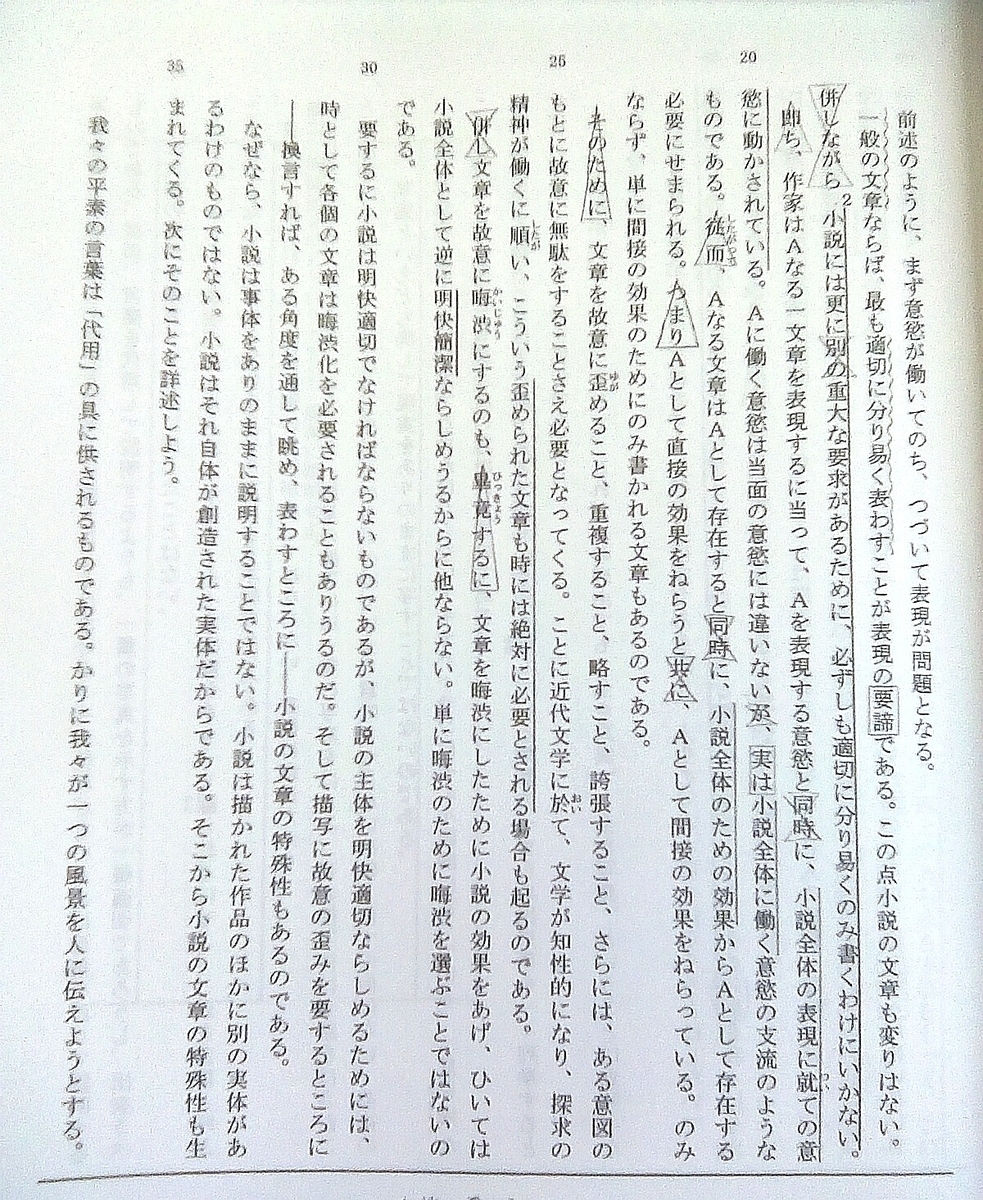 前述のように、まず意慾が働いてのち、つづいて表現が問題となる。
一般の文章ならば、最も適切に分り易く表わすことが表現の要諦である。この点小説の文章も変りはない。
併しながら2小説には更に別の重大な要求があるために、必ずしも適切に分り易くのみ書くわけにいかない。
即ち、作家はAなる一文章を表現するに当って、Aを表現する意慾と同時に、小説全体の表現に就ての意
慾に動かされている。Aに働く意慾は当面の意慾には違いないが、実は小説全体に働く意慾の支流のような
20
ものである。従而、Aなる文章はAとして存在すると同時に、小説全体のための効果からAとして存在する
必要にせまられる。つまりAとして直接の効果をねらうと共に、Aとして間接の効果をねらっている。のみ
ならず、単に間接の効果のためにのみ書かれる文章もあるのである。
そのために、文章を故意に歪めること、重複すること、略すこと、誇張すること、さらには、ある意図の
もとに故意に無駄をすることさえ必要となってくる。ことに近代文学に於て、文学が知性的になり、探求の
25
精神が働くに順い、こういう歪められた文章も時には絶対に必要とされる場合も起るのである。
併し文章を故意に晦渋にするのも、畢竟するに、文章を晦渋にしたために小説の効果をあげ、ひいては
小説全体として逆に明快簡潔ならしめうるからに他ならない。単に晦渋のために晦渋を選ぶことではないの
である。
要するに小説は明快適切でなければならないものであるが、小説の主体を明快適切ならしめるためには、
30
時として各個の文章は晦渋化を必要されることもありうるのだ。そして描写に故意の歪みを要するところに
――換言すれば、ある角度を通して眺め、表わすところに――小説の文章の特殊性もあるのである。
なぜなら、小説は事体をありのままに説明することではない。小説は描かれた作品のほかに別の実体があ
るわけのものではない。小説はそれ自体が創造された実体だからである。そこから小説の文章の特殊性も生
まれてくる。次にそのことを詳述しよう。
35
我々の平素の言葉は「代用」の具に供されるものである。かりに我々が一つの風景を人に伝えようとする。